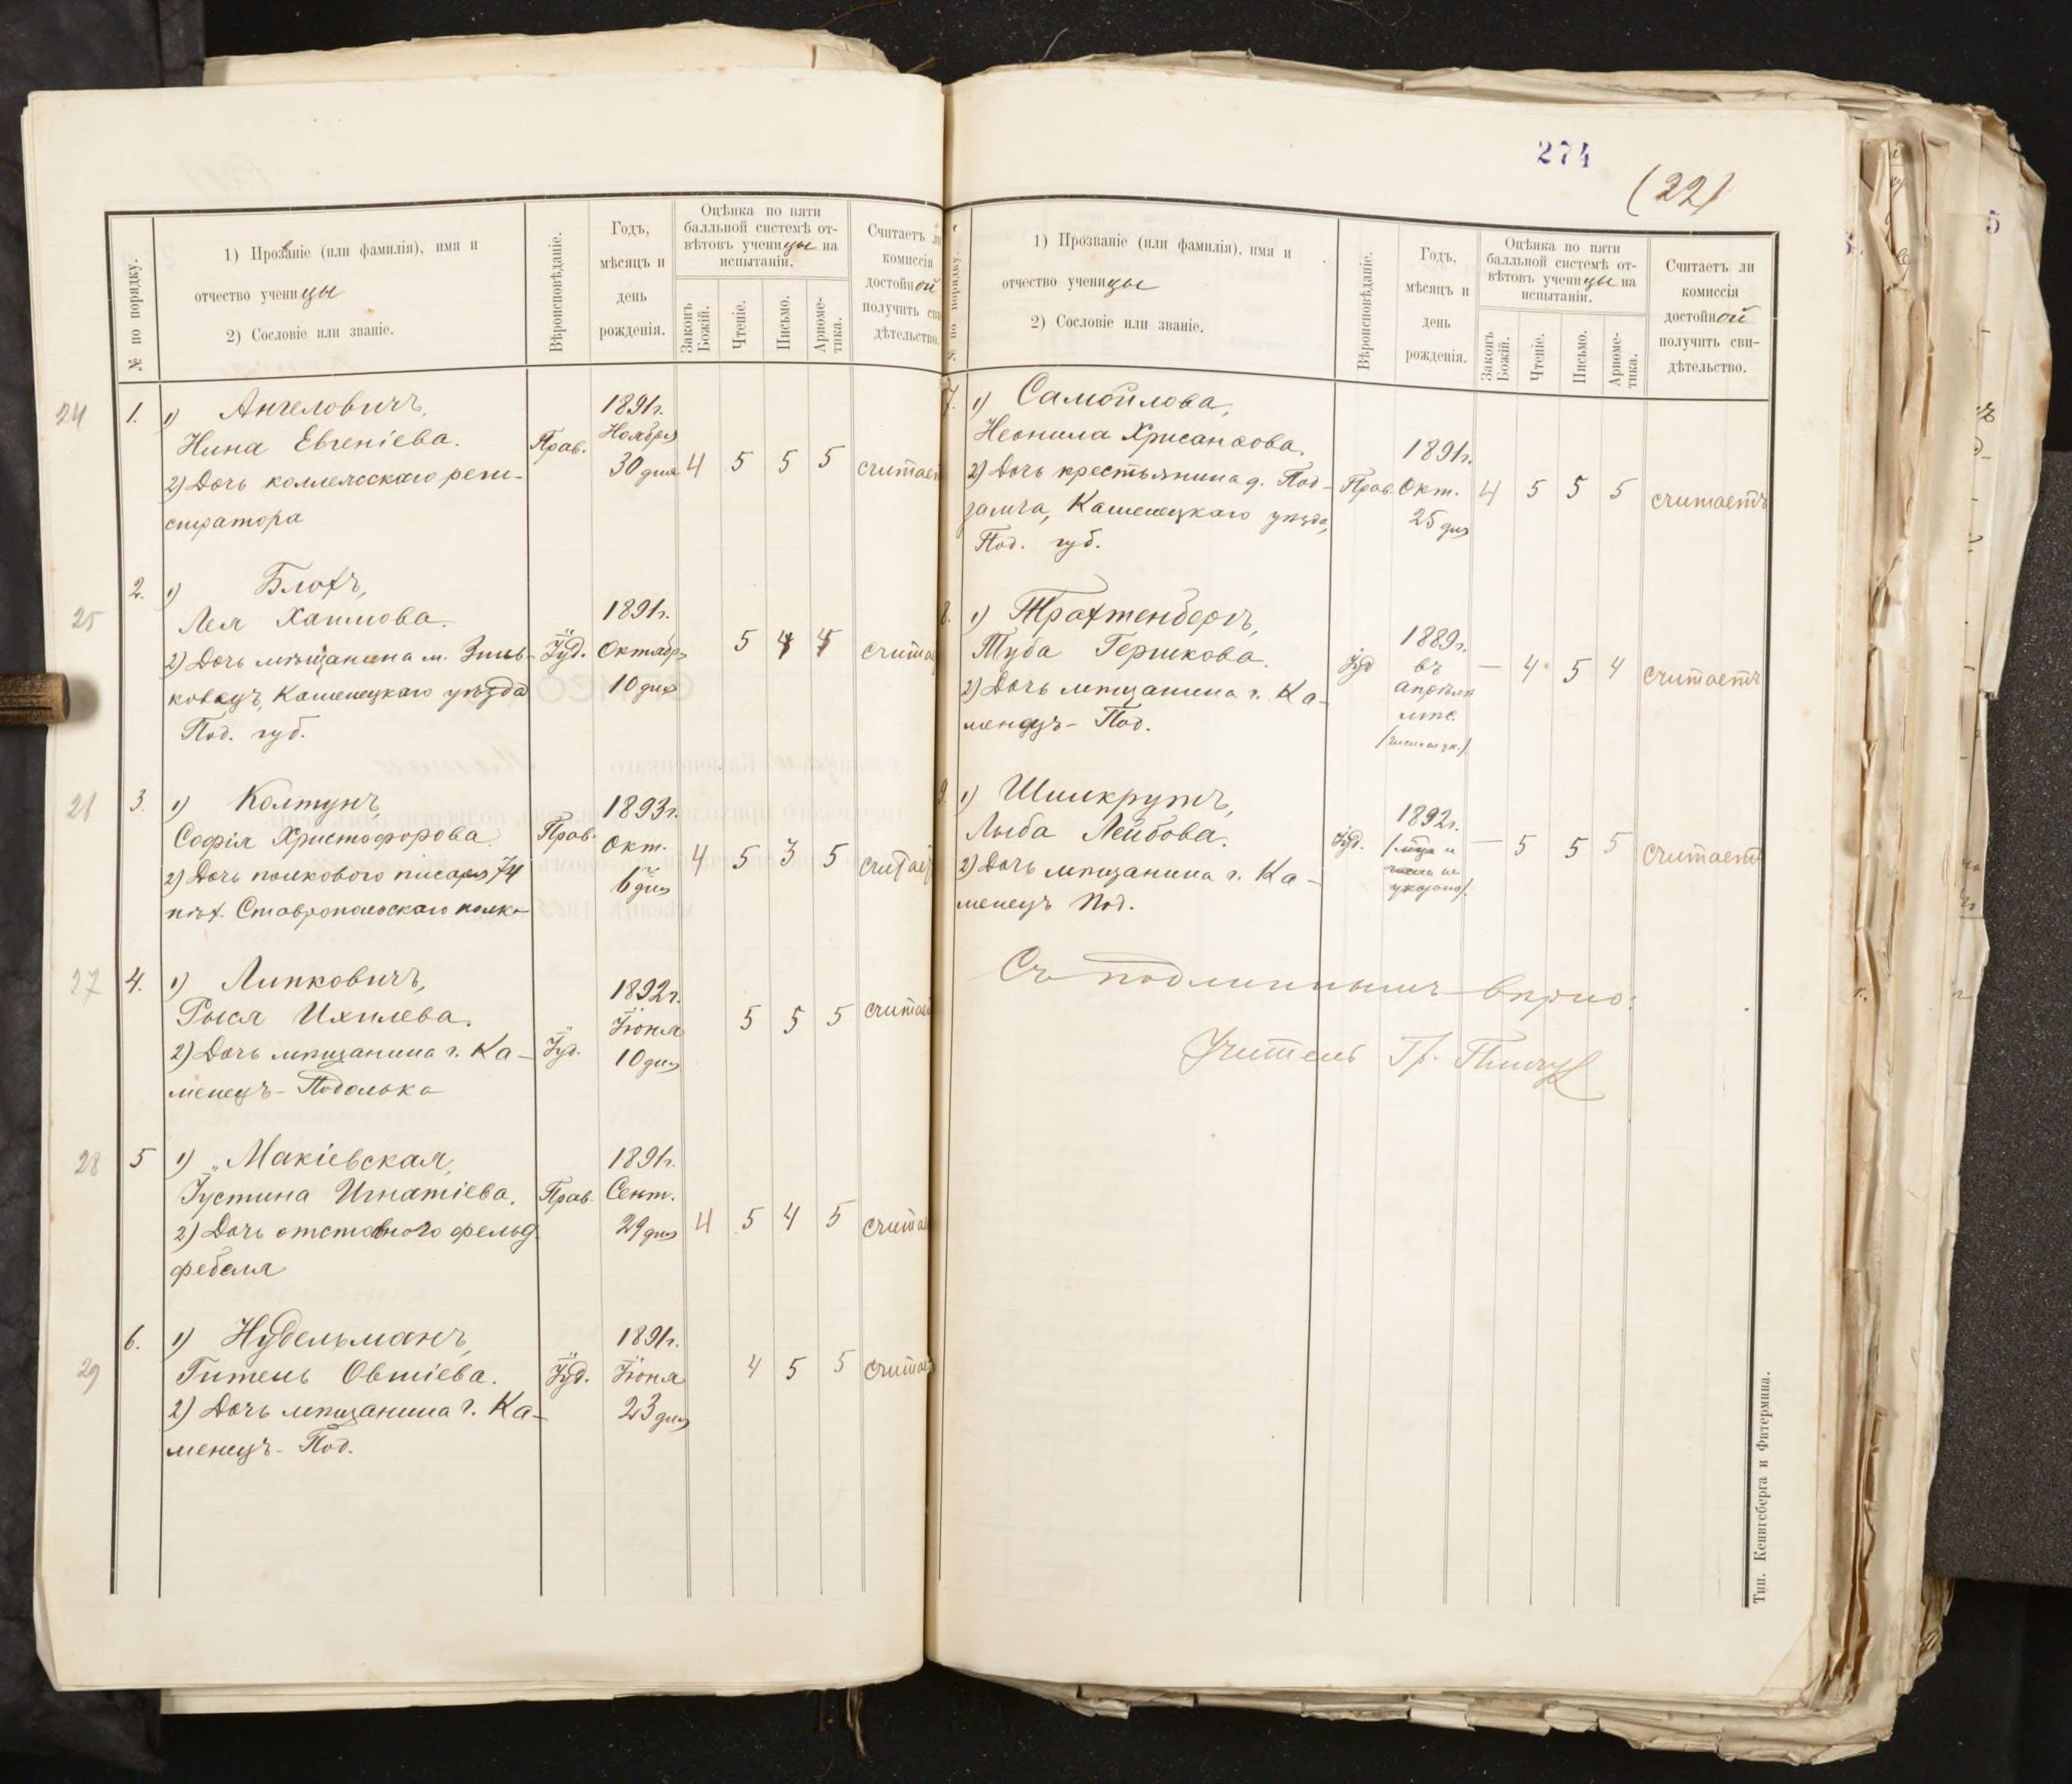 274
(22)
№ по порядку.
1) Прозваніе (или фамилія), имя и
отчество ученицы
2) Сословіе или званіе.
Вѣроисповѣданіе.
Годъ,
мѣсяцъ и
день
рожденія.
Оцѣнка по пяти
балльной системѣ от-
вѣтовъ ученицы на
испытаніи.
Законъ
Божій.
Чтеніе.
Письмо.
Ариѳме-
тика.
Считаетъ ли
комиссія
достойной
получить сви-
дѣтельство.
24 1. 1) Ангеловичъ,
Нина Евгеніева.
2) Дочь коллежскаго реги-
стратора
Прав.
1891г.
Ноября
30 дня
4 5 5 5 считает
25 2. 1) Блохъ,
Лея Хаимова.
2) Дочь мѣщанина м. Зинь-
ковецъ, Каменецкаго уѣзда
Под. губ.
Іуд.
1891г.
Октября
10 дня
5 4 4 считае
26 3. 1) Колтунъ,
Софія Христофорова
2) Дочь полкового писаря 74
пѣх. Ставропольскаго полка
Прав.
1893г.
Окт.
6 дня
4 5 3 5 считает
27 4. 1) Липковичъ,
Рыся Ихилева.
2) Дочь мѣщанина г. Ка-
менецъ-Подольска
Іуд.
1892г.
Іюня
10 дня
5 5 5 считае
28 5 1) Макіевская,
Іустина Игнатіева.
2) Дочь отставного фельд
фебеля
Прав.
1891г.
Сент.
29 дня
4 5 4 5 считае
29 6. 1) Нудельманъ,
Гитель Овшіева.
2) Дочь мѣщанина г. Ка-
менецъ-Под.
Іуд.
1891г.
Іюня
23 дня
4 5 5 считае
№ по порядку.
1) Прозваніе (или фамилія), имя и
отчество ученицы
2) Сословіе или званіе.
Вѣроисповѣданіе.
Годъ,
мѣсяцъ и
день
рожденія.
Оцѣнка по пяти
балльной системѣ от-
вѣтовъ ученицы на
испытаніи.
Законъ
Божій.
Чтеніе.
Письмо.
Ариѳме-
тика.
Считаетъ ли
комиссія
достойной
получить сви-
дѣтельство.
7. 1) Самойлова,
Неонила Хрисанѳова.
2) Дочь крестьянина д. Под-
замча, Каменецкаго уѣзда,
Под. губ.
Прав.
1891г.
Окт.
25 дня
4 5 5 5 считаетъ
8. 1) Трахтенбергъ,
Туба Гершкова.
2) Дочь мѣщанина г. Ка-
менецъ-Под.
Іуд
1889г.
въ
апрѣлѣ
мѣс.
— 4 5 4 считаетъ
9. 1) Шилкрутъ,
Лыба Лейбова.
2) Дочь мѣщанина г. Ка-
менецъ Под.
Іуд.
1892г.
/мѣс. и
число не
указано/.
— 5 5 5 считает
Съ подлиннымъ вѣрно:
Учитель Гр.
Тип. Кенигсберга и Фитермина.